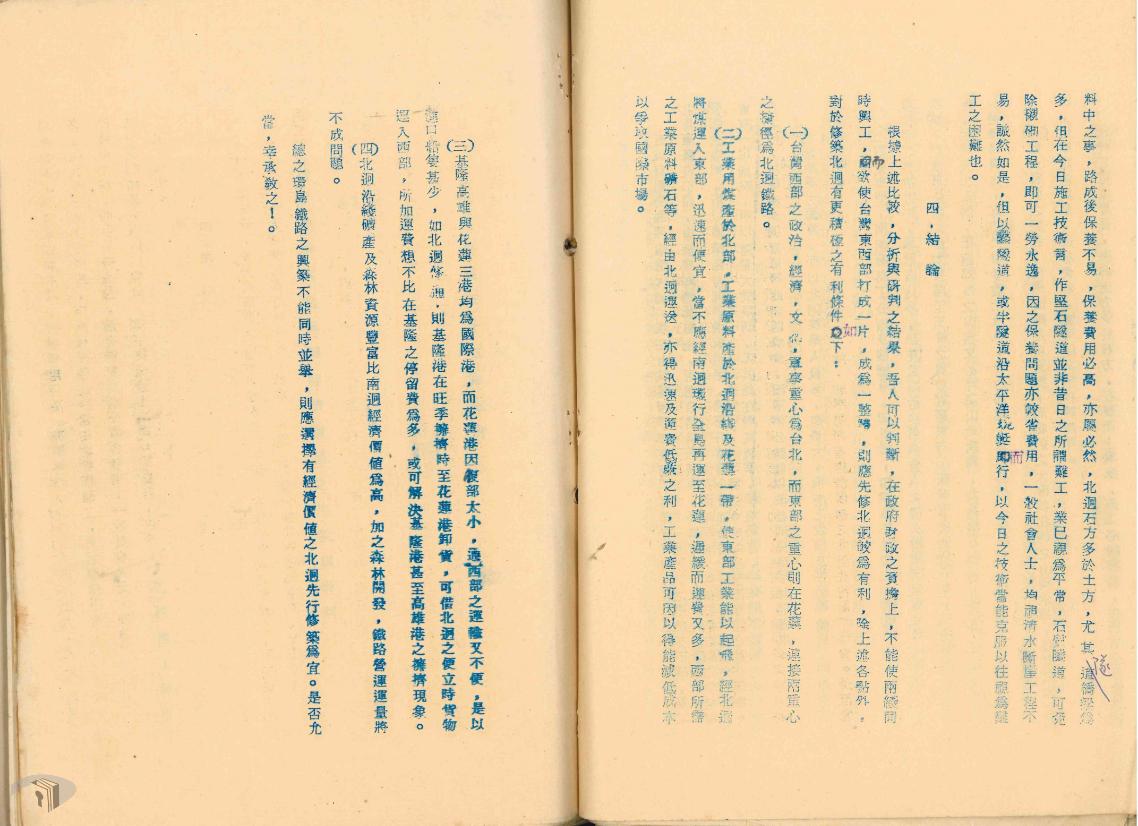 料中之事，路成後保養不易，保養費用必高，亦屬必然，北迴石方多於土方，尤其隧道橋樑為
多，但在今日施工技術言，作堅石隧道並非昔日之所謂難工，業已視為平常，石質隧道，可免
除襯砌工程，即可一勞永逸，因之保養問題亦較省費用，一般社會人士，均視清水斷崖工程不
易，誠然如是，但以鑿隧道，或半隧道沿太平洋蜿蜒而行，以今日之技術當能克服以往視為難
工之困難也。
四，結論
根據上述比較，分析與研判之結果，吾人可以判斷，在政府財政之負擔上，不能使兩線同
時興工，而欲使台灣東西部打成一片，成為一整體，則應先修北迴較為有利，除上述各點外，
對於修築北迴有更積極之有利條件如下：
(一)台灣西部之政治，經濟，文化，軍事重心為台北，而東部之重心則在花蓮，連接兩重心
之捷徑為北迴鐵路。
(二)工業用煤產於北部，工業原料產於北迴沿線及花蓮一帶，使東部工業能以起飛，經北迴
將煤運入東部，迅速而便宜，當不應經南迴環行全島再運至花蓮，過緩而運費又多，西部所需
之工業原料礦石等，經由北迴運送，亦得迅速及運費低廉之利，工業產品可因以得能減低成本
以爭取國際市場。
(三)基隆高雄與花蓮三港均為國際港，而花蓮港因腹部太小，通西部之運輸又不便，是以
進口船隻甚少，如北迴修通，則基隆港在旺季擁擠時至花蓮港卸貨，可借北迴之便立時貨物
運入西部，所加運費想不比在基隆之停留費為多，或可解決基隆港甚至高雄港之擁擠現象。
(四)北迴沿綫礦產及森林資源豐富比南迴經濟價值為高，加之森林開發，鐵路營運運量將
不成問題。
總之環島鐵路之興築不能同時並舉，則應選擇有經濟價值之北迴先行修築為宜。是否允
當，幸承教之！。